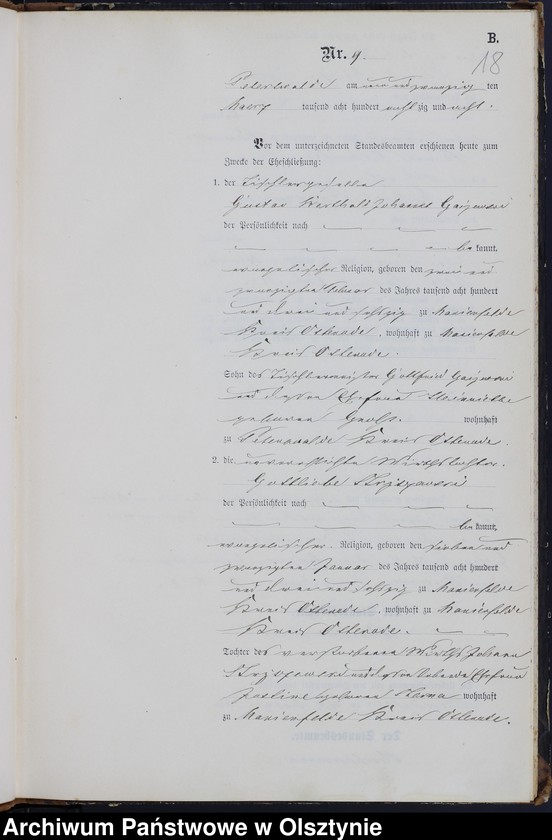 B.
18
Nr. 9.
Peterswalde am ein und zwanzig ten
Maerz tausend acht hundert acht zig und acht.
Vor dem unterzeichneten Standesbeamten erschienen heute zum
Zwecke der Eheschließung:
1. der Tischlergeselle
Gustav Berthold Johann
der Persönlichkeit nach
be kannt,
evangelischer Religion, geboren den zwei und
zwanzigsten des Jahres tausend acht hundert
und drei und sechszig zu Marienfelde
Kreis Osterode, wohnhaft zu Marienfelde
Kreis Osterode.
Sohn des Tischlermeister Gottfried
und dessen Ehefrau
geborenen wohnhaft
zu Peterswalde Kreis Osterode.
2. die unverehelichte Wirthstochter
Gottliebe
der Persönlichkeit nach
be kannt,
evangelischer Religion, geboren den sieben und
zwanzigsten Januar des Jahres tausend acht hundert
und drei und sechszig zu Marienfelde
Kreis Osterode, wohnhaft zu Marienfelde
Kreis Osterode.
Tochter des verstorbenen Wirths Johann
und dessen lebende Ehefrau
geborenen wohnhaft
zu Marienfelde Kreis Osterode.
Archiwum Państwowe w Olsztynie